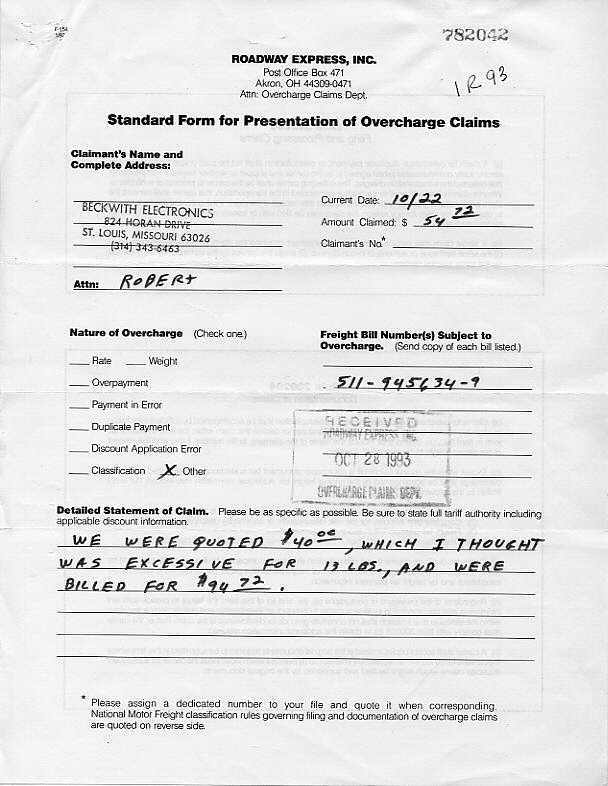 782042
ROADWAY EXPRESS, INC.
Post Office Box 471
Akron, OH 44309-0471
Attn: Overcharge Claims Dept.
1R93
Standard Form for Presentation of Overcharge Claims
Claimant's Name and
Complete Address:
BECKWITH ELECTRONICS
824 HORAN DRIVE
ST. LOUIS, MISSOURI 63026
(314) 343-6463
Attn: ROBERT
Current Date: 10/22
Amount Claimed: $ 54 72
Claimant's No.*
Nature of Overcharge (Check one.)
Rate Weight
Overpayment
Payment in Error
Duplicate Payment
Discount Application Error
Classification X Other
Freight Bill Number(s) Subject to
Overcharge. (Send copy of each bill listed.)
511-945634-9
RECEIVED
ROADWAY EXPRESS INC.
OCT 28 1993
OVERCHARGE CLAIMS DEPT.
Detailed Statement of Claim. Please be as specific as possible. Be sure to state full tariff authority including
applicable discount information.
WE WERE QUOTED $40 00, WHICH I THOUGHT
WAS EXCESSIVE FOR 13 LBS., AND WERE
BILLED FOR $94 72.
* Please assign a dedicated number to your file and quote it when corresponding.
National Motor Freight classification rules governing filing and documentation of overcharge claims
are quoted on reverse side.